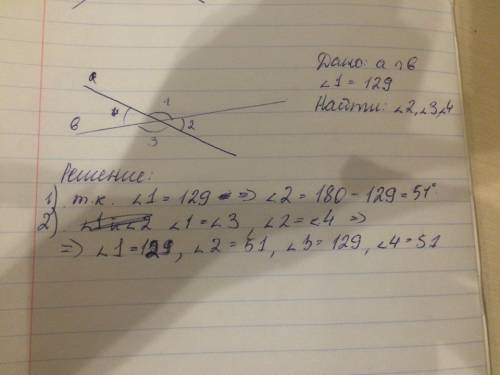 a
4 1
в 2
3
Дано: a ∩ в
∠1 = 129
Найти: ∠2, ∠3, ∠4
Решение:
1) т.к. ∠1 = 129 => ∠2 = 180 - 129 = 51°
2) ∠1 = ∠3, ∠2 = ∠4 =>
=> ∠1 = 129, ∠2 = 51, ∠3 = 129, ∠4 = 51